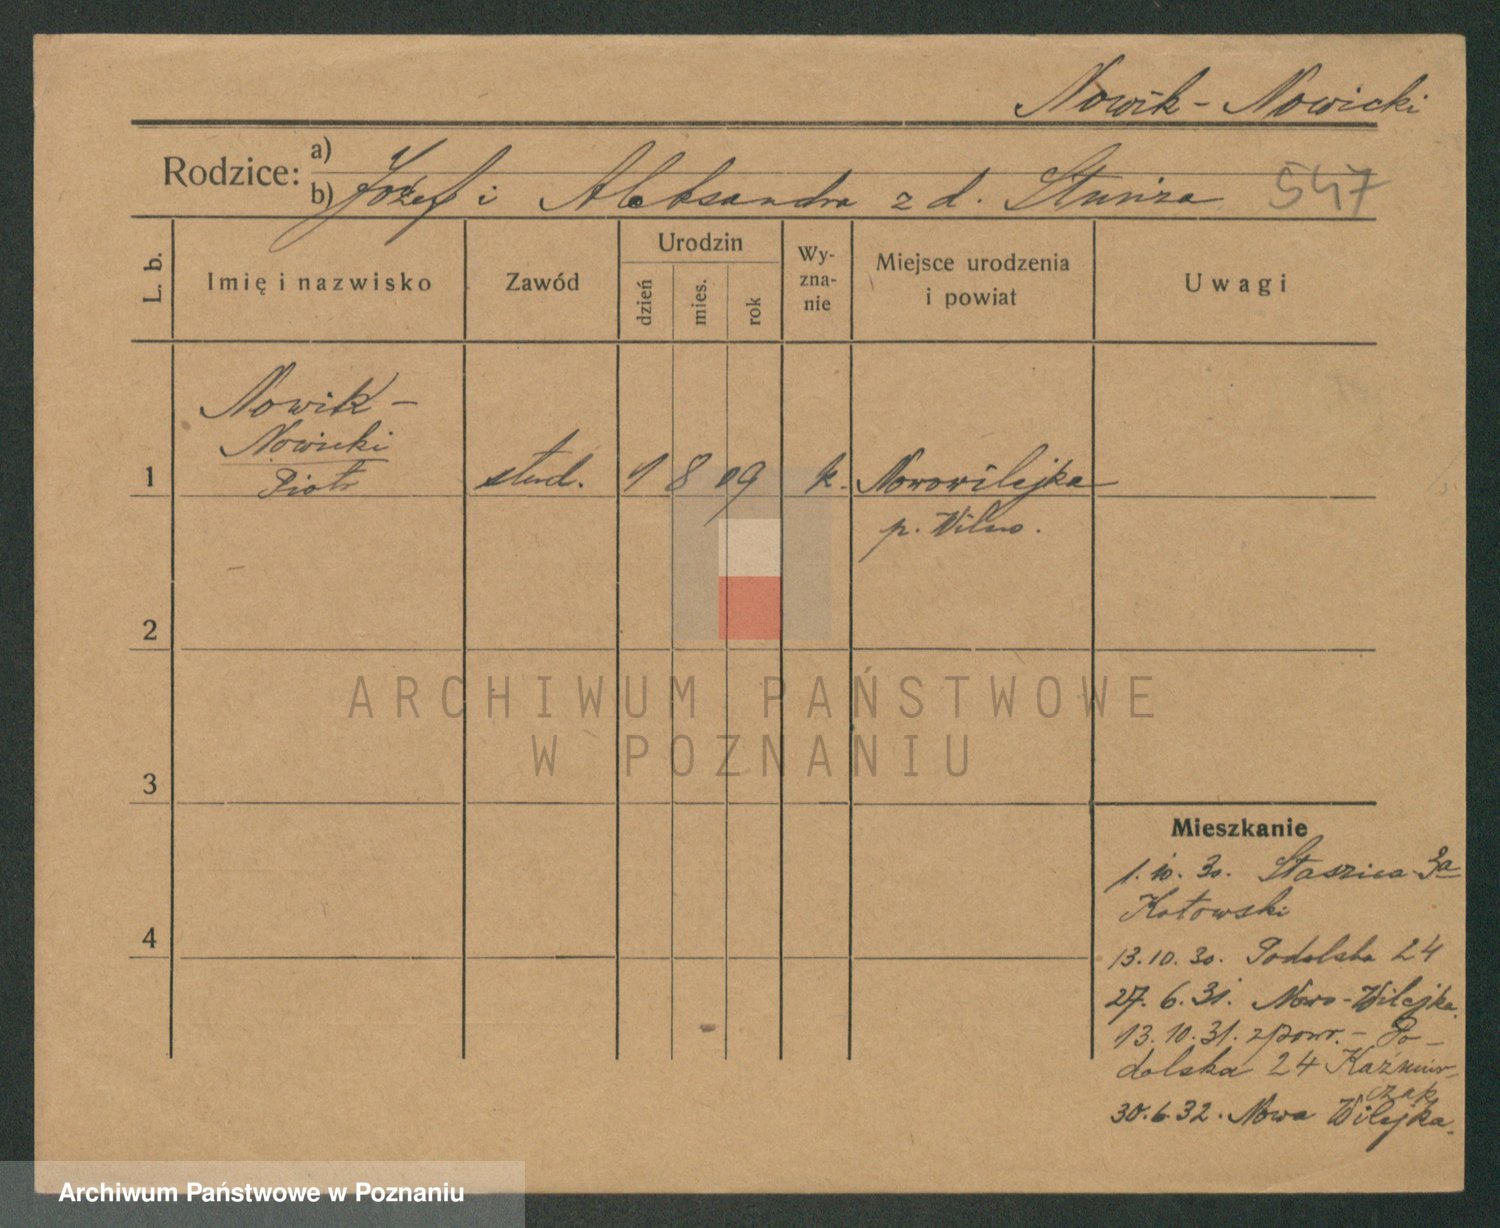 Nowik - Nowicki
Rodzice:
a)
b) Józef i Aleksandra z d.
547
L. b.
Imię i nazwisko
Zawód
Urodzin
dzień
mies.
rok
Wy-
zna-
nie
Miejsce urodzenia
i powiat
Uwagi
Nowik -
Nowicki
1 Piotr stud. 1 8 09 k. Nowowilejka
p. Wilno.
2
3
4
ARCHIWUM PAŃSTWOWE
W POZNANIU
Mieszkanie
1. 10. 30. Staszica 3a
Kotowski
13. 10. 30. Podolska 24
27. 6. 31. Nowo-Wilejka.
13. 10. 31. zpowr. - Po-
dolska 24 Kaźmier-
czak
30. 6. 32. Nowa Wilejka.
Archiwum Państwowe w Poznaniu